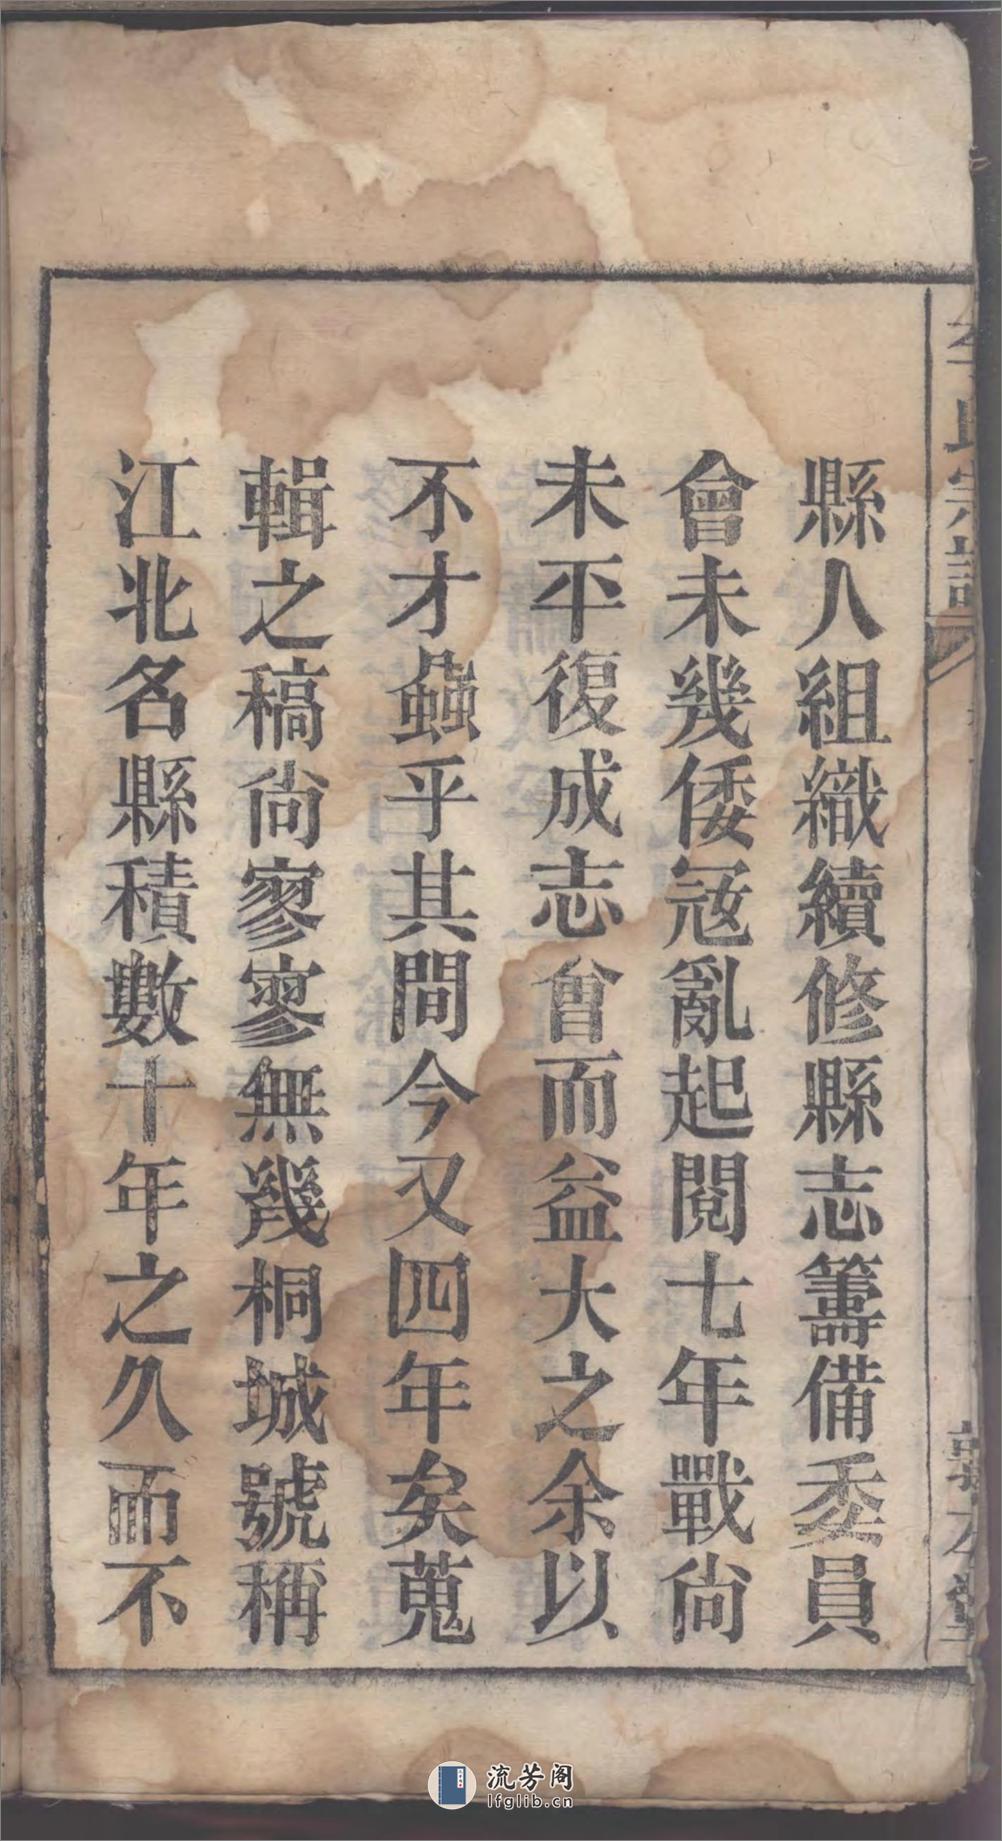 縣人組織續修縣志籌備委員
會未幾倭冦亂起閱七年戰尙
未平復成志會而益大之余以
不才蝨乎其間今又四年矣蒐
輯之稿尙寥寥無幾桐城號稱
江北名縣積數十年之久而不
流芳阁
lfglib.cn